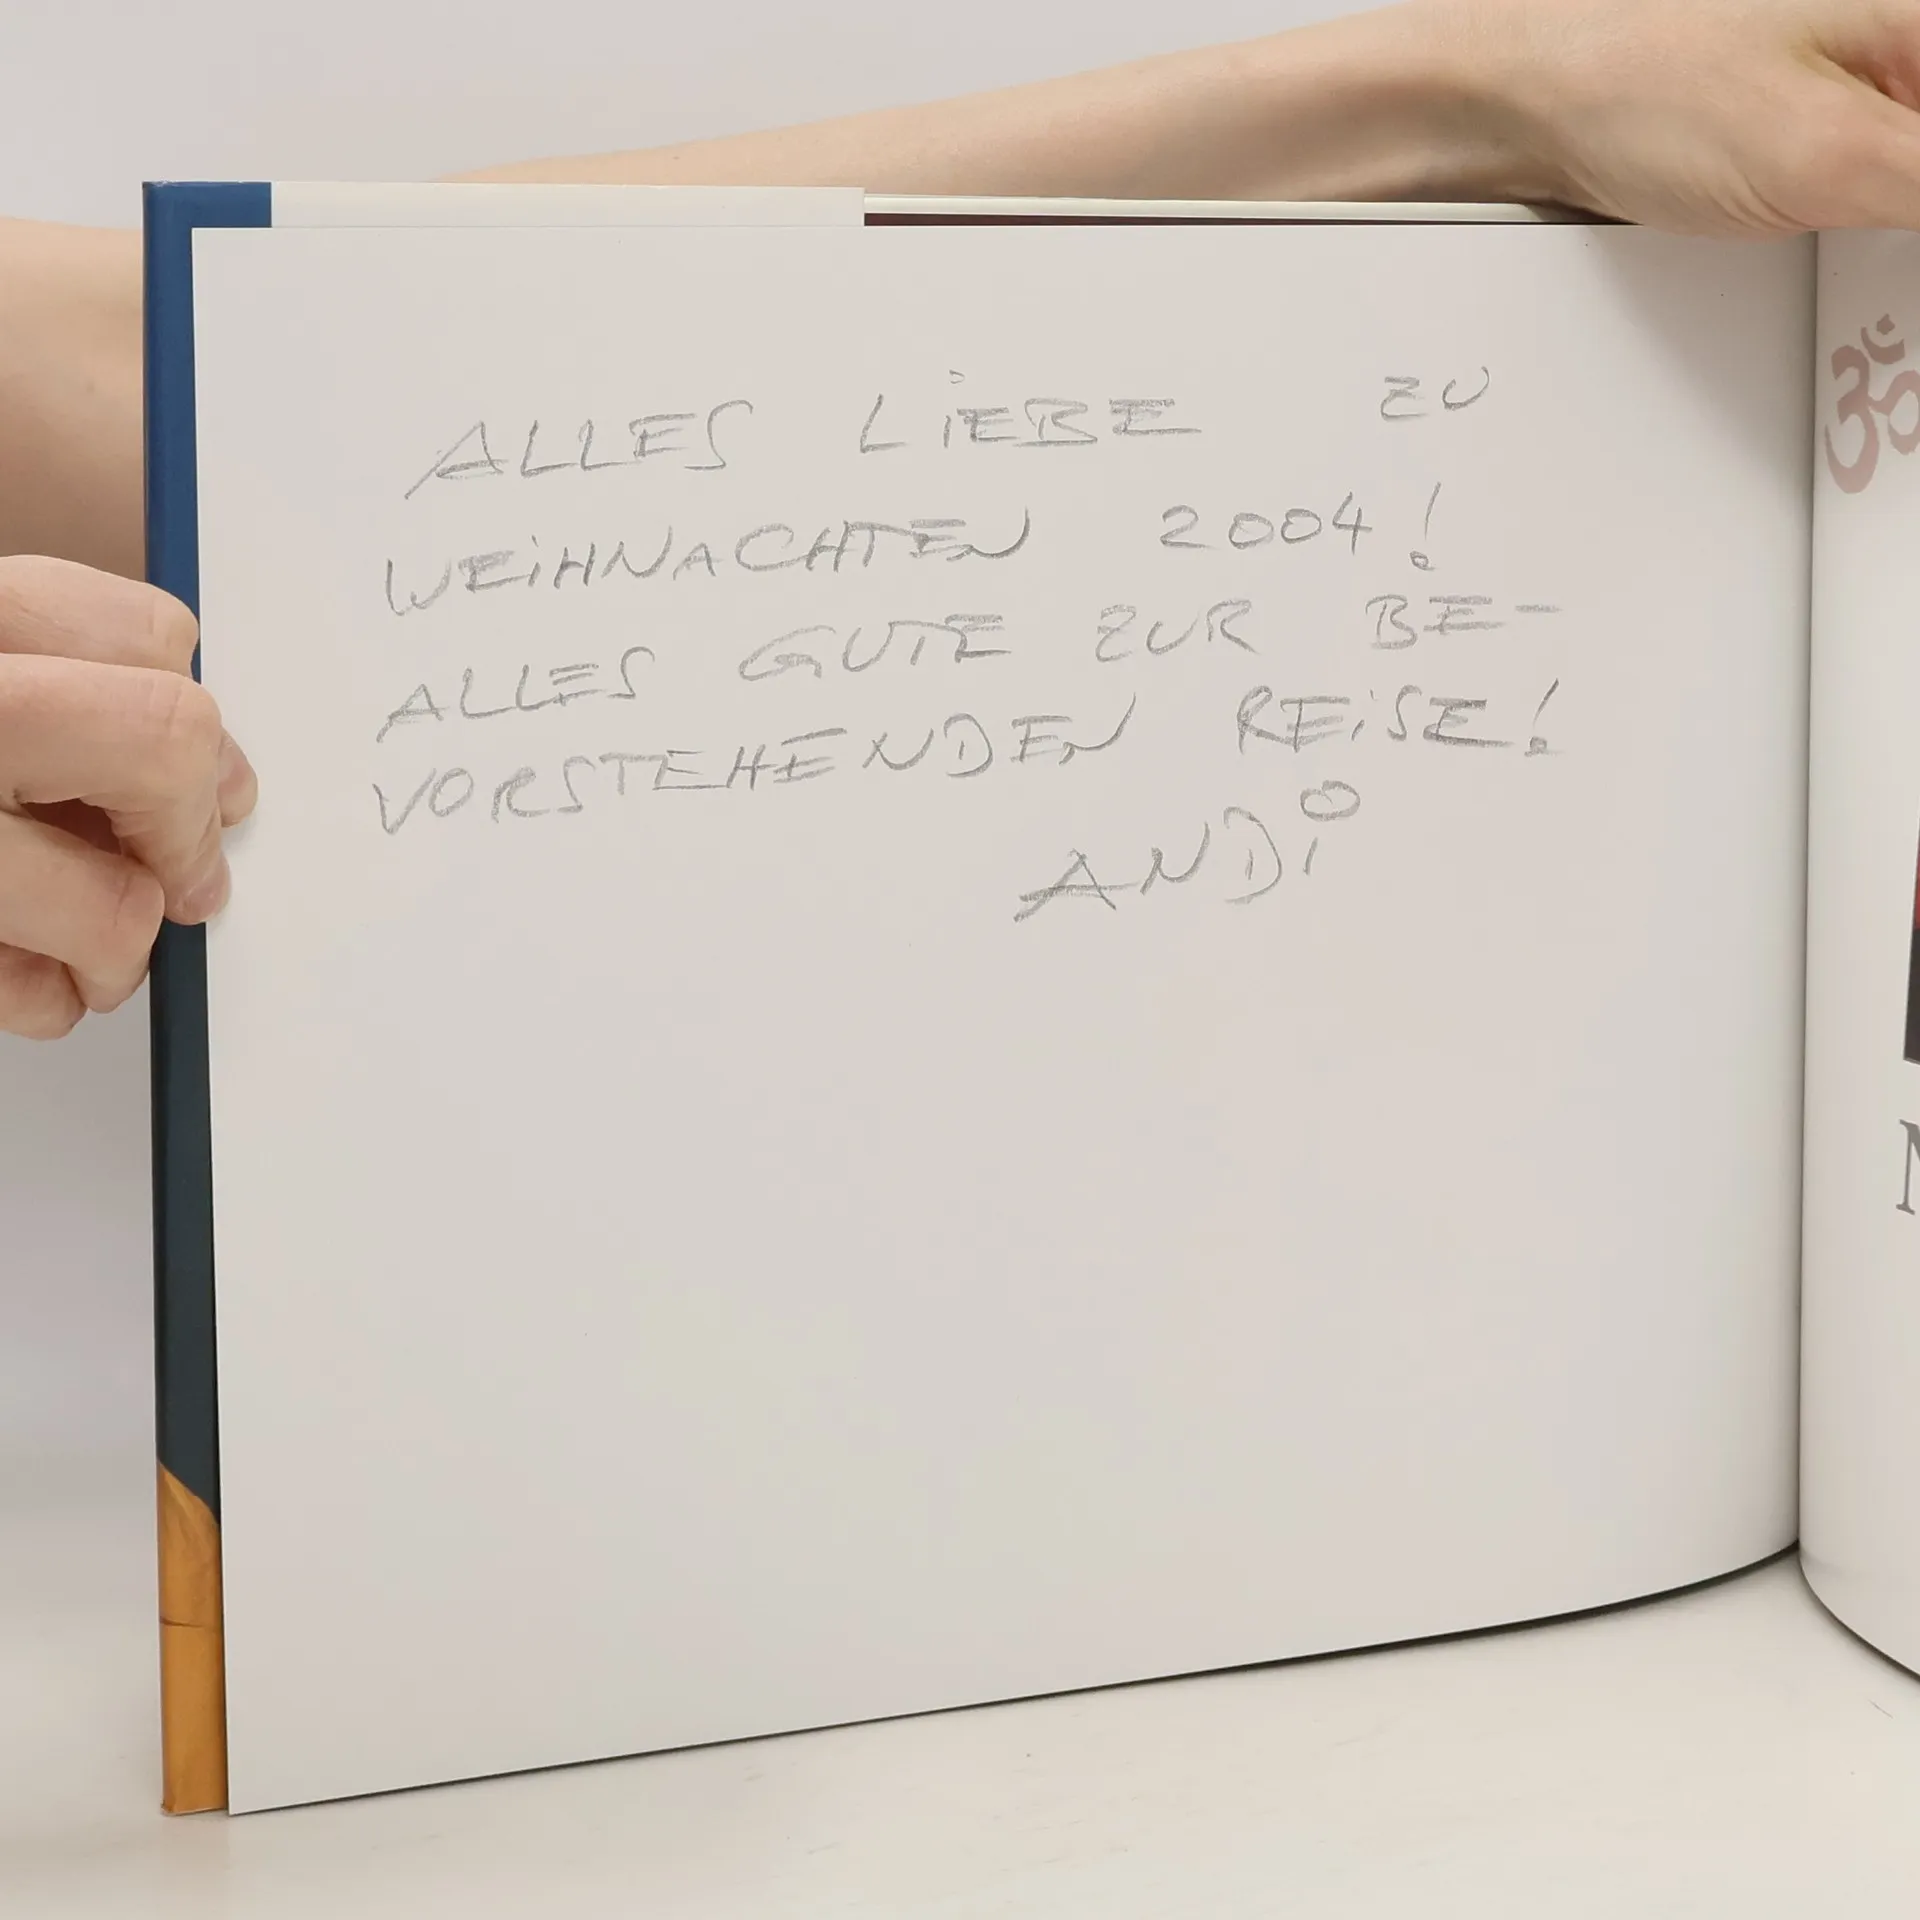 ALLES LiEBE ZU
WEiHNACHTEN 2004!
ALLES GUTE ZUR BE-
VORSTEHENDEN REiSE!
ANDi
ॐ